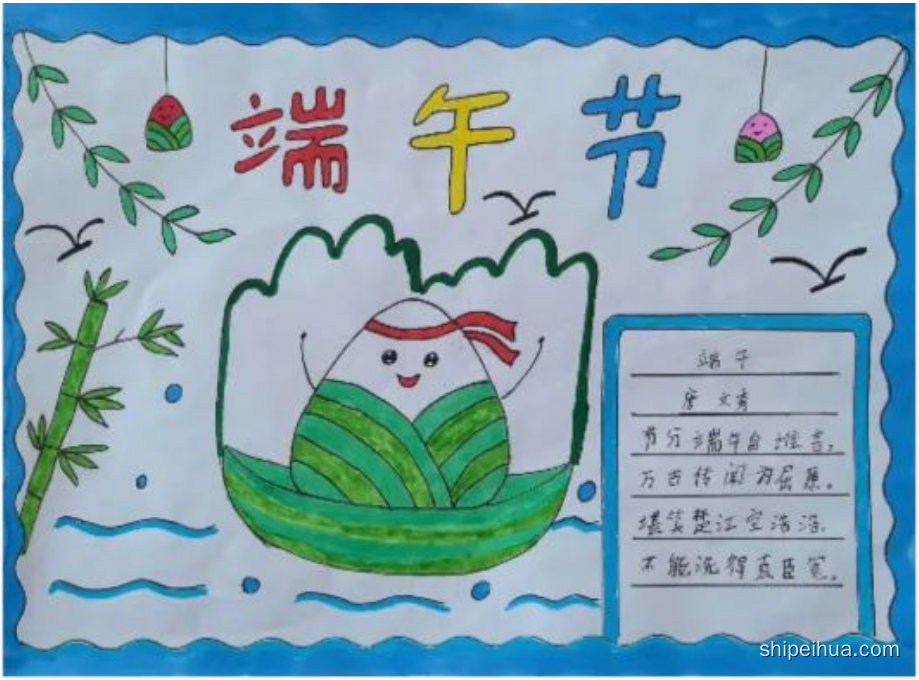 端午节
端午
唐 文秀
节分端午自谁言,
万古传闻为屈原。
堪笑楚江空浩浩,
不能洗得直臣冤。
shipeihua.com